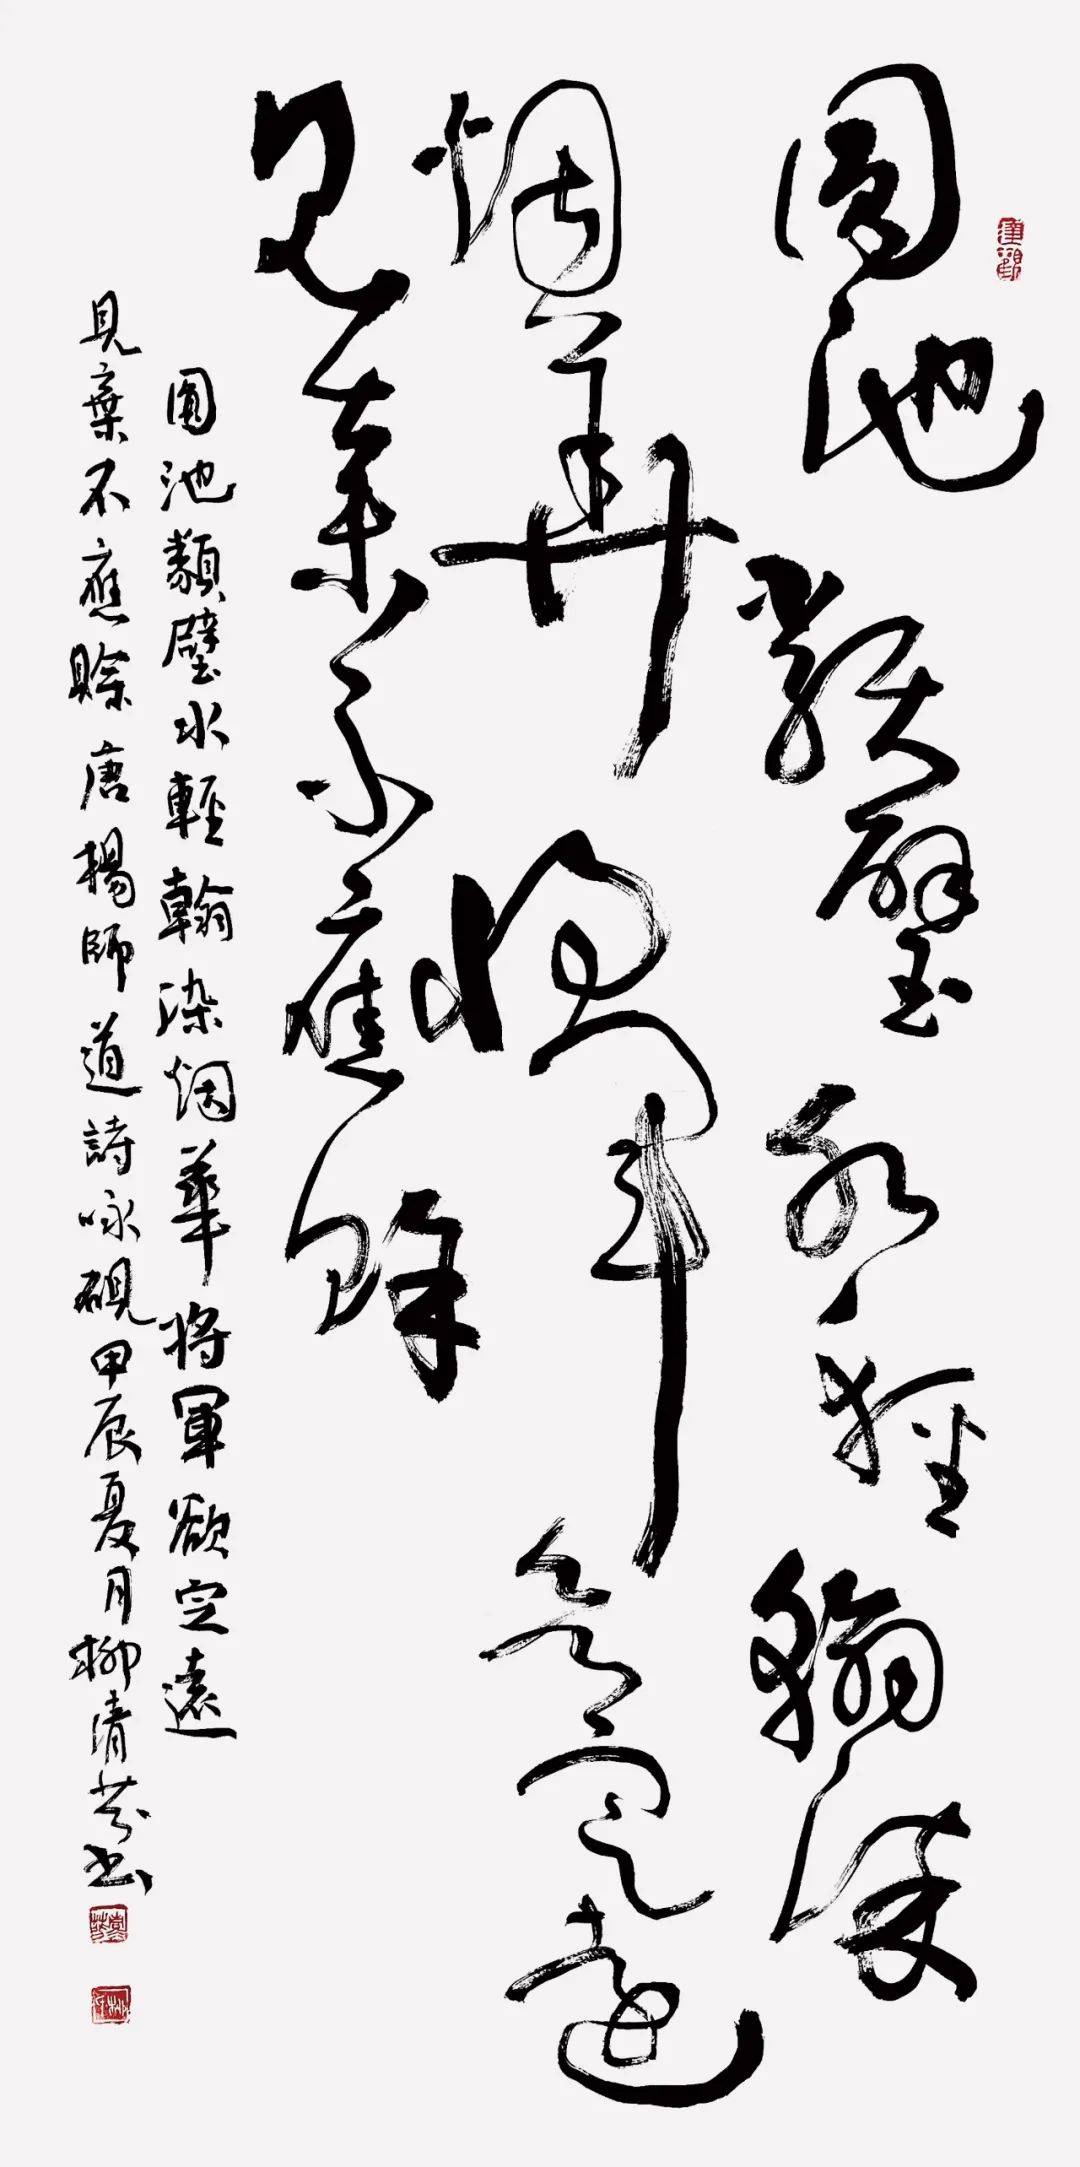 圆池類璧水輕翰染
烟華將軍欲定遠
見棄不應賒
圓池類璧水輕翰染烟華將軍欲定遠
見棄不應賒唐楊師道詩咏硯甲辰夏月柳清芬書